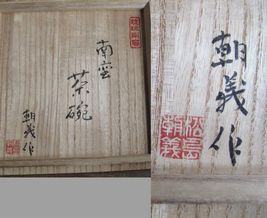 南蛮
茶碗
朝義作
朝義作
松島
朝義